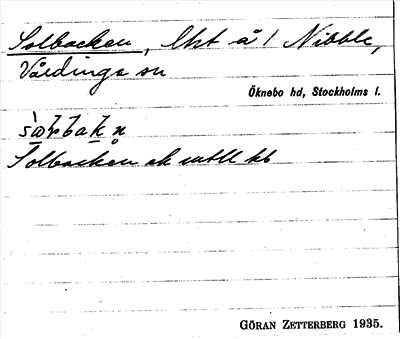 Solbacken, lht å 1 Nibble,
Vårdinge sn
Öknebo hd, Stockholms l.
Solbacken ek
GÖRAN ZETTERBERG 1935.